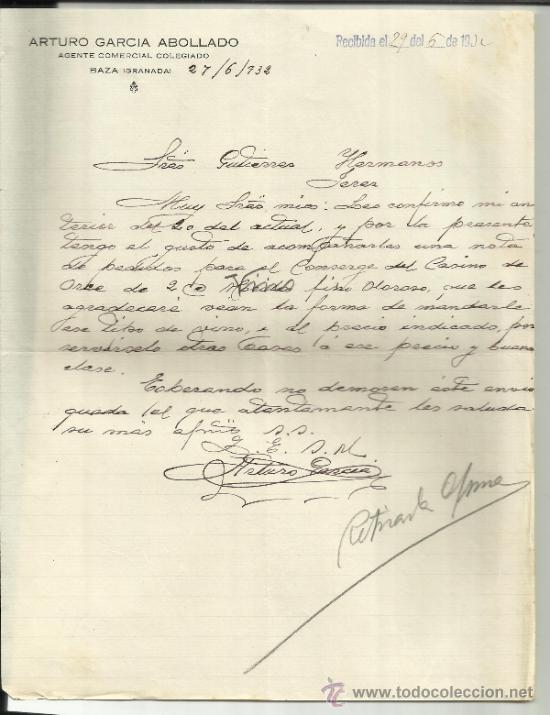 ARTURO GARCIA ABOLLADO
AGENTE COMERCIAL COLEGIADO
BAZA (GRANADA) 27/6/932
Recibida el 29 del 5 de 193
Srēs Gutierrez Hermanos
Jerez
Muy Srēs mios: Les confirmo mi an
terior del 20 del actual, y por la presente
tengo el gusto de acompañarles una nota
de pedidos para el Conserge del Casino de
Orce de 2 fino Oloroso, que les
agradeceré vean la forma de mandarle
ese tipo de vino, e al precio indicado, por
servirselo otras Casas á ese precio y buena
clase.
Esperando no demoren éste envio
queda el que atentamente les saluda
su más afmo s.s.
q. E. S. M.
Arturo Garcia
Retirada
www.todocoleccion.net